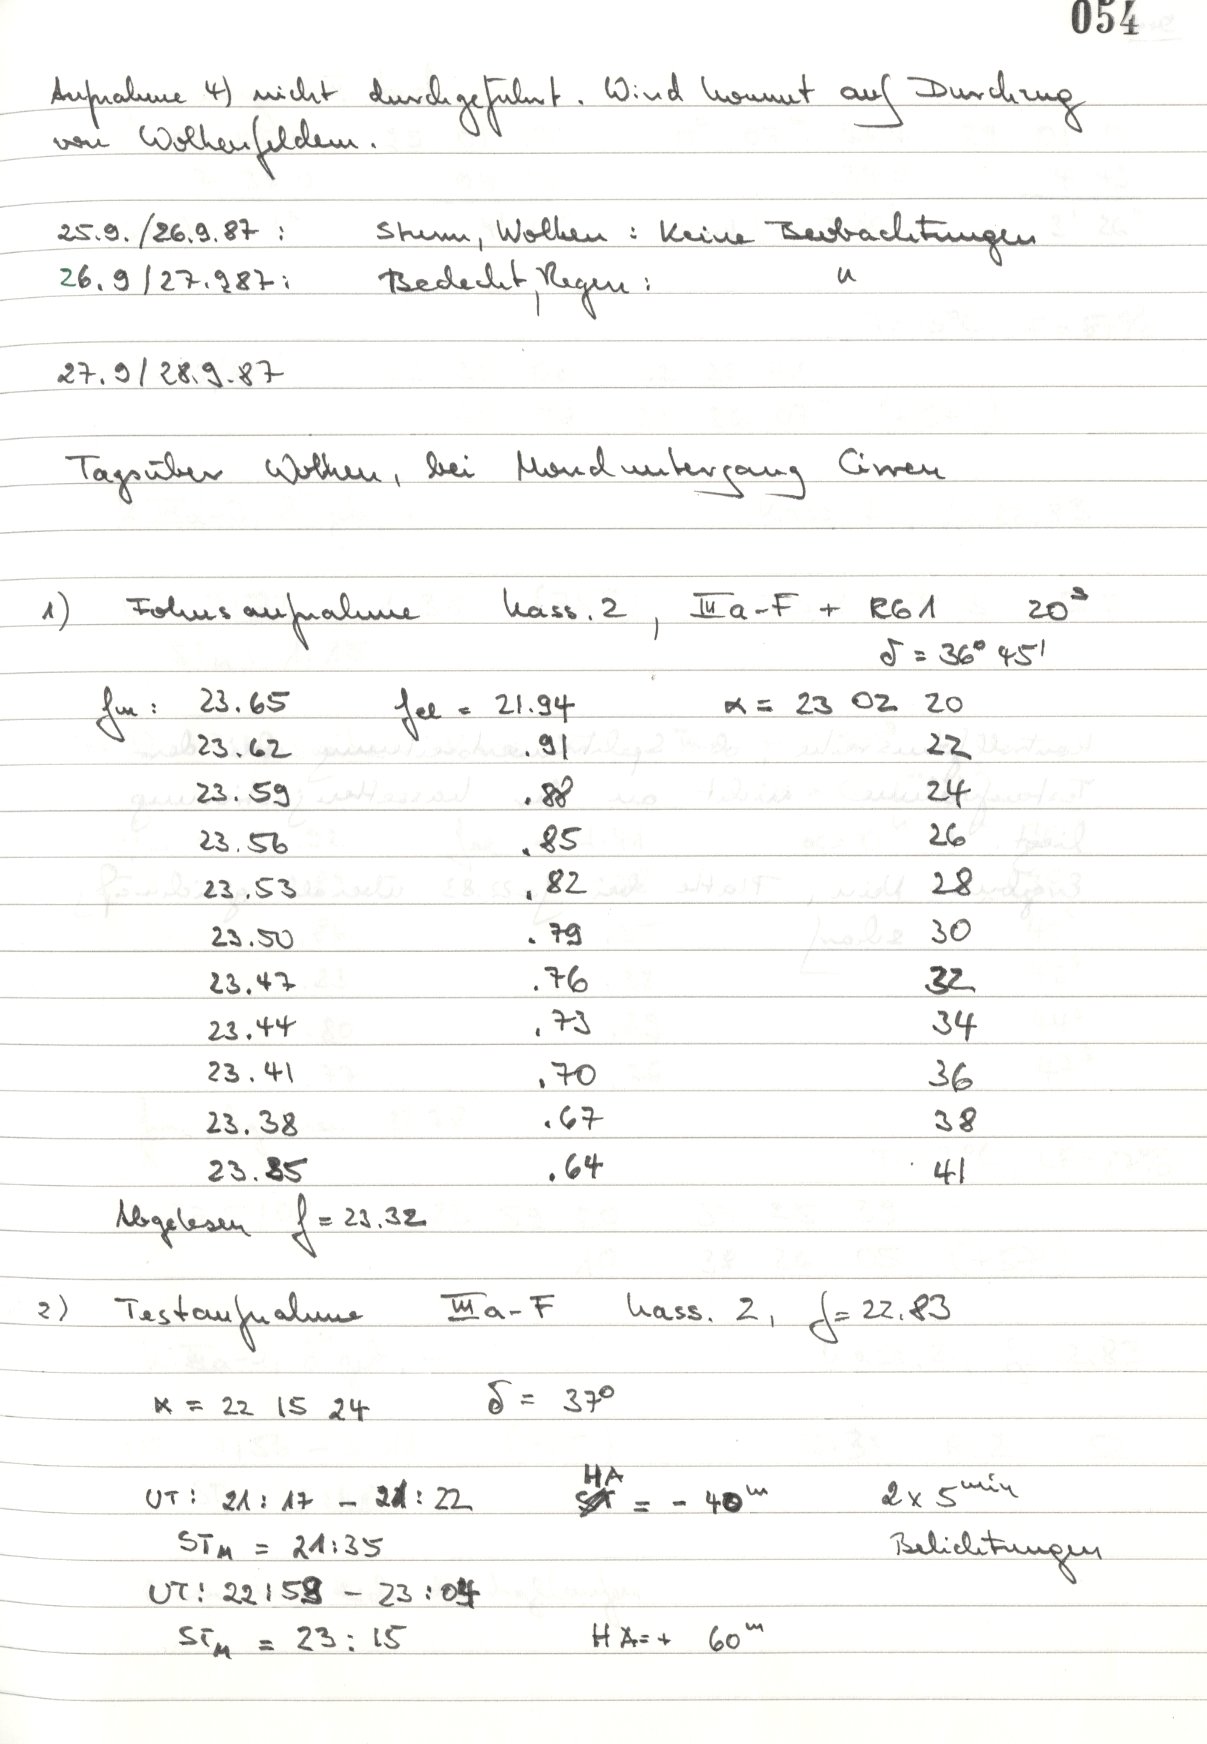 054
Aufnahme 4) nicht durchgeführt. Wind kommt auf Durchzug
von Wolkenfeldern.
25.9./26.9.87 : Sturm, Wolken : Keine Beobachtungen
26.9/27.987: Bedeckt, Regen : "
27.9/28.9.87
Tagsüber Wolken, bei Monduntergang Cirren
1) Fokusaufnahme Kass. 2, IIIa-F + RG1 20ˢ
δ = 36° 45'
fm : 23.65 fel = 21.94 α = 23 02 20
23.62 .91 22
23.59 .88 24
23.56 .85 26
23.53 .82 28
23.50 .79 30
23.47 .76 32
23.44 .73 34
23.41 .70 36
23.38 .67 38
23.35 .64 41
Abgelesen f = 23.32
2) Testaufnahme IIIa-F Kass. 2, f = 22.83
α = 22 15 24 δ = 37°
UT : 21 : 17 – 21 : 22 HA = - 40ᵐ 2 x 5ᵐⁱⁿ
STM = 21:35 Belichtungen
UT : 22:59 – 23:04
STM = 23:15 HA = + 60ᵐ